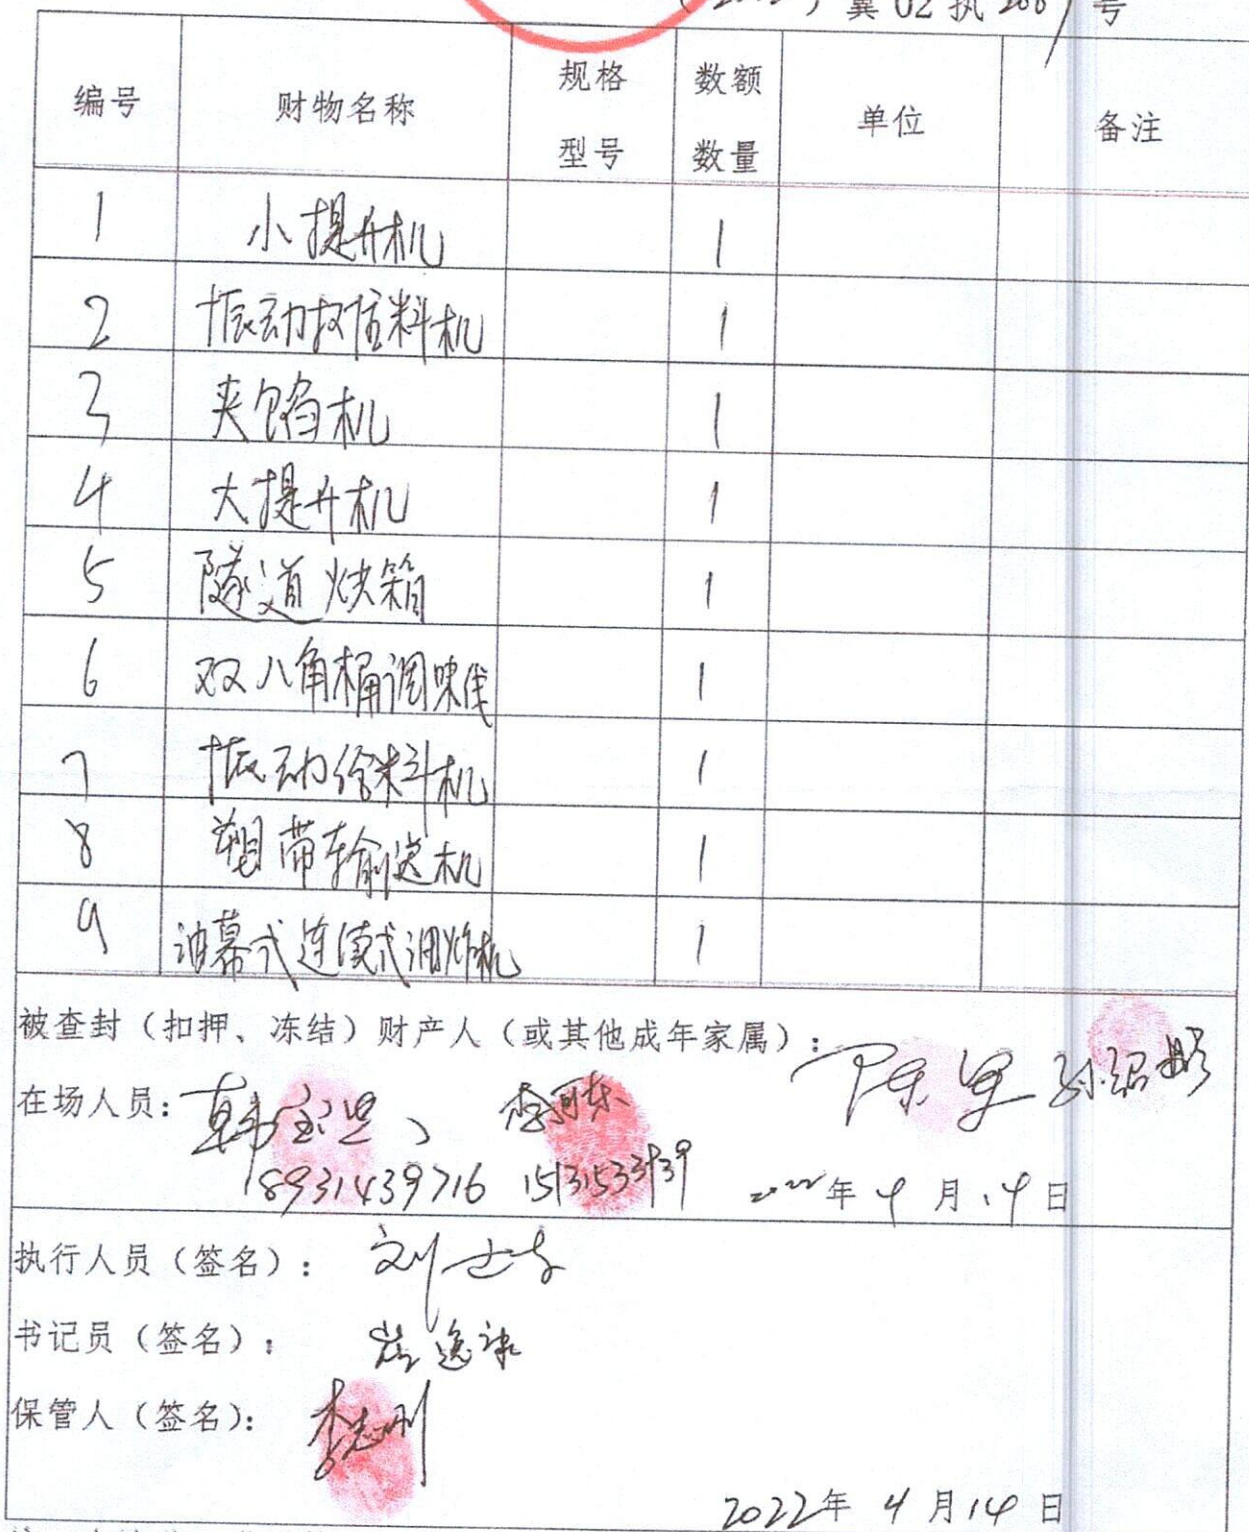 (2022) 冀 02 执 2667 号
编号 财物名称 规格型号 数额数量 单位 备注
1 小提升机 1
2 振动投料机 1
3 夹馅机 1
4 大提升机 1
5 隧道烘箱 1
6 双八角桶调味线 1
7 振动给料机 1
8 塑带输送机 1
9 油幕式连续式油炸机 1
被查封（扣押、冻结）财产人（或其他成年家属）：
在场人员：韩宝 、 李
18931439716 2022年4月14日
执行人员（签名）： 刘
书记员（签名）： 逸
保管人（签名）： 李志刚
2022年 4月14日